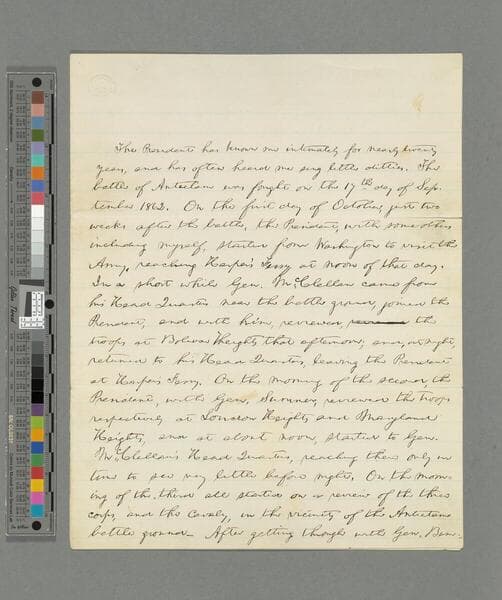 The President has known me intimately for nearly twenty
years, and has often heard me sing little ditties. The
battle of Antietam was fought on the 17th day of Sep-
tember 1862. On the first day of October, just two
weeks after the battle, the President, with some others
including myself, started from Washington to visit the
Army, reaching Harper's Ferry at noon of that day.
In a short while Gen. McClellan came from
his Head Quarters near the battle ground, joined the
President, and with him, reviewed the
troops at Bolivar Heights that afternoon; and, at night,
returned to his Head Quarters, leaving the President
at Harper's Ferry. On the morning of the second, the
President, with Gen. Sumner, reviewed the troops
respectively at Loudon Heights and Maryland
Heights, and at about noon, started to Gen.
McClellan's Head Quarters, reaching there only in
time to see very little before night. On the morn-
ing of the third all started on a review of the three
corps, and the Cavalry, in the vicinity of the Antietam
battle ground. After getting through with Gen. Burn-